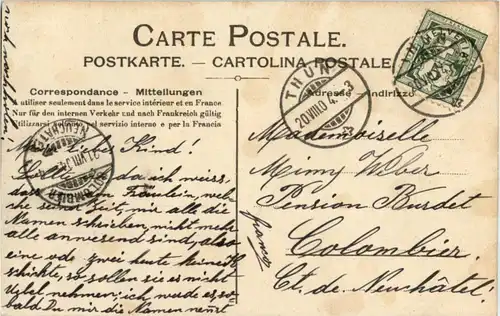 CARTE POSTALE.
POSTKARTE. — CARTOLINA POSTALE
Correspondance - Mitteilungen
A utiliser seulement dans le service intérieur et en France
Nur für den internen Verkehr und nach Frankreich gültig
Utilizzarsi servizio interno e per la Francia
Adresse Indirizzo
THUN
20.VIII.04.
COLOMBIER
(NEUCHATEL)
Mein liebes Kind!
da ich weiss,
dass Fräulein, wel-
che seiner Zeit, mir alle die
Namen schreiben, nicht mehr
alle anwesend sind, also
eine od. zwei heute keine
schickte, so sollen sie es nicht
Uebel nehmen; ich wede es, so-
bald Du mir die Namen nennst
Mademoiselle
Mimy Weber
Pension Burdet
Colombier.
Ct. de Neuchâtel.
franco